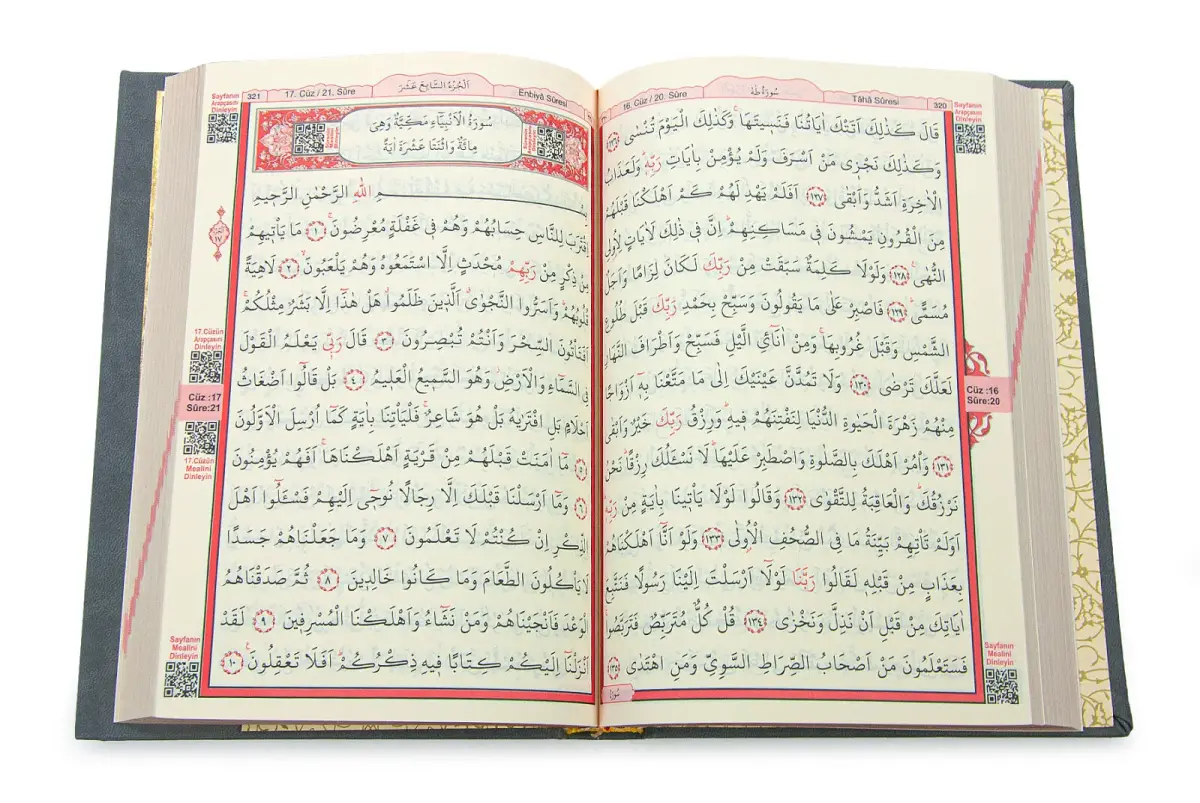 320 Tâhâ Sûresi سُورَةُ طٰهٰ 16. Cüz / 20. Sûre
قَالَ كَذٰلِكَ اَتَتْكَ اٰيَاتُنَا فَنَسِيتَهَاۚ وَكَذٰلِكَ الْيَوْمَ تُنْسٰى ﴿١٢٦﴾
وَكَذٰلِكَ نَجْزٖى مَنْ اَسْرَفَ وَلَمْ يُؤْمِنْ بِاٰيَاتِ رَبِّهٖۜ وَلَعَذَابُ
الْاٰخِرَةِ اَشَدُّ وَاَبْقٰى ﴿١٢٧﴾ اَفَلَمْ يَهْدِ لَهُمْ كَمْ اَهْلَكْنَا قَبْلَهُمْ
مِنَ الْقُرُونِ يَمْشُونَ فٖى مَسَاكِنِهِمْۜ اِنَّ فٖى ذٰلِكَ لَاٰيَاتٍ لِاُولِى
النُّهٰىۚ ﴿١٢٨﴾ وَلَوْلَا كَلِمَةٌ سَبَقَتْ مِنْ رَبِّكَ لَكَانَ لِزَامًا وَاَجَلٌ
مُسَمًّىۜ ﴿١٢٩﴾ فَاصْبِرْ عَلٰى مَا يَقُولُونَ وَسَبِّحْ بِحَمْدِ رَبِّكَ قَبْلَ طُلُوعِ
الشَّمْسِ وَقَبْلَ غُرُوبِهَاۚ وَمِنْ اٰنَٓائِ الَّيْلِ فَسَبِّحْ وَاَطْرَافَ النَّهَارِ
لَعَلَّكَ تَرْضٰى ﴿١٣٠﴾ وَلَا تَمُدَّنَّ عَيْنَيْكَ اِلٰى مَا مَتَّعْنَا بِهٖٓ اَزْوَاجًا
مِنْهُمْ زَهْرَةَ الْحَيٰوةِ الدُّنْيَا لِنَفْتِنَهُمْ فٖيهِۜ وَرِزْقُ رَبِّكَ خَيْرٌ وَاَبْقٰى
﴿١٣١﴾ وَأْمُرْ اَهْلَكَ بِالصَّلٰوةِ وَاصْطَبِرْ عَلَيْهَاۜ لَا نَسْـَٔلُكَ رِزْقًاۜ نَحْنُ
نَرْزُقُكَۜ وَالْعَاقِبَةُ لِلتَّقْوٰى ﴿١٣٢﴾ وَقَالُوا لَوْلَا يَأْتٖينَا بِاٰيَةٍ مِنْ رَبِّهٖۜ
اَوَلَمْ تَأْتِهِمْ بَيِّنَةُ مَا فِى الصُّحُفِ الْاُولٰى ﴿١٣٣﴾ وَلَوْ اَنَّٓا اَهْلَكْنَاهُمْ
بِعَذَابٍ مِنْ قَبْلِهٖ لَقَالُوا رَبَّنَا لَوْلَٓا اَرْسَلْتَ اِلَيْنَا رَسُولًا فَنَتَّبِعَ
اٰيَاتِكَ مِنْ قَبْلِ اَنْ نَذِلَّ وَنَخْزٰى ﴿١٣٤﴾ قُلْ كُلٌّ مُتَرَبِّصٌ فَتَرَبَّصُواۚ
فَسَتَعْلَمُونَ مَنْ اَصْحَابُ الصِّرَاطِ السَّوِيِّ وَمَنِ اهْتَدٰى ﴿١٣٥﴾
Sayfanın
Arapçasını
Dinleyin
Cüz :16
Sûre:20
Sayfanın
Mealini
Dinleyin
Enbiyâ Sûresi اَلْجُزْءُ السَّابِعَ عَشَرَ 17. Cüz / 21. Sûre 321
سُورَةُ الْاَنْبِيَٓاءِ مَكِّيَّةٌ وَهِىَ
مِائَةٌ وَاثْنَتَا عَشْرَةَ اٰيَةً
ـمِ اللهِ الرَّحْمٰنِ الرَّحٖيمِ
اِقْتَرَبَ لِلنَّاسِ حِسَابُهُمْ وَهُمْ فٖى غَفْلَةٍ مُعْرِضُونَۚ ﴿١﴾ مَا يَأْتٖيهِمْ
مِنْ ذِكْرٍ مِنْ رَبِّهِمْ مُحْدَثٍ اِلَّا اسْتَمَعُوهُ وَهُمْ يَلْعَبُونَۙ ﴿٢﴾ لَاهِيَةً
قُلُوبُهُمْۜ وَاَسَرُّوا النَّجْوٰىۗ اَلَّذٖينَ ظَلَمُواۗ هَلْ هٰذَٓا اِلَّا بَشَرٌ مِثْلُكُمْۚ
اَفَتَأْتُونَ السِّحْرَ وَاَنْتُمْ تُبْصِرُونَ ﴿٣﴾ قَالَ رَبّٖى يَعْلَمُ الْقَوْلَ
فِى السَّمَٓاءِ وَالْاَرْضِۘ وَهُوَ السَّمٖيعُ الْعَلٖيمُ ﴿٤﴾ بَلْ قَالُٓوا اَضْغَاثُ
اَحْلَامٍ بَلِ افْتَرٰيهُ بَلْ هُوَ شَاعِرٌۚ فَلْيَأْتِنَا بِاٰيَةٍ كَمَٓا اُرْسِلَ الْاَوَّلُونَ
﴿٥﴾ مَٓا اٰمَنَتْ قَبْلَهُمْ مِنْ قَرْيَةٍ اَهْلَكْنَاهَاۚ اَفَهُمْ يُؤْمِنُونَ
﴿٦﴾ وَمَٓا اَرْسَلْنَا قَبْلَكَ اِلَّا رِجَالًا نُوحٖٓى اِلَيْهِمْ فَسْـَٔلُٓوا اَهْلَ
الذِّكْرِ اِنْ كُنْتُمْ لَا تَعْلَمُونَ ﴿٧﴾ وَمَا جَعَلْنَاهُمْ جَسَدًا
لَا يَأْكُلُونَ الطَّعَامَ وَمَا كَانُوا خَالِدٖينَ ﴿٨﴾ ثُمَّ صَدَقْنَاهُمُ
الْوَعْدَ فَاَنْجَيْنَاهُمْ وَمَنْ نَشَٓاءُ وَاَهْلَكْنَا الْمُسْرِفٖينَ ﴿٩﴾ لَقَدْ
اَنْزَلْنَٓا اِلَيْكُمْ كِتَابًا فٖيهِ ذِكْرُكُمْۜ اَفَلَا تَعْقِلُونَ۟ ﴿١٠﴾
Sayfanın
Arapçasını
Dinleyin
17.Cüzün
Arapçasını
Dinleyin
Cüz :17
Sûre:21
17.Cüzün
Mealini
Dinleyin
Sayfanın
Mealini
Dinleyin